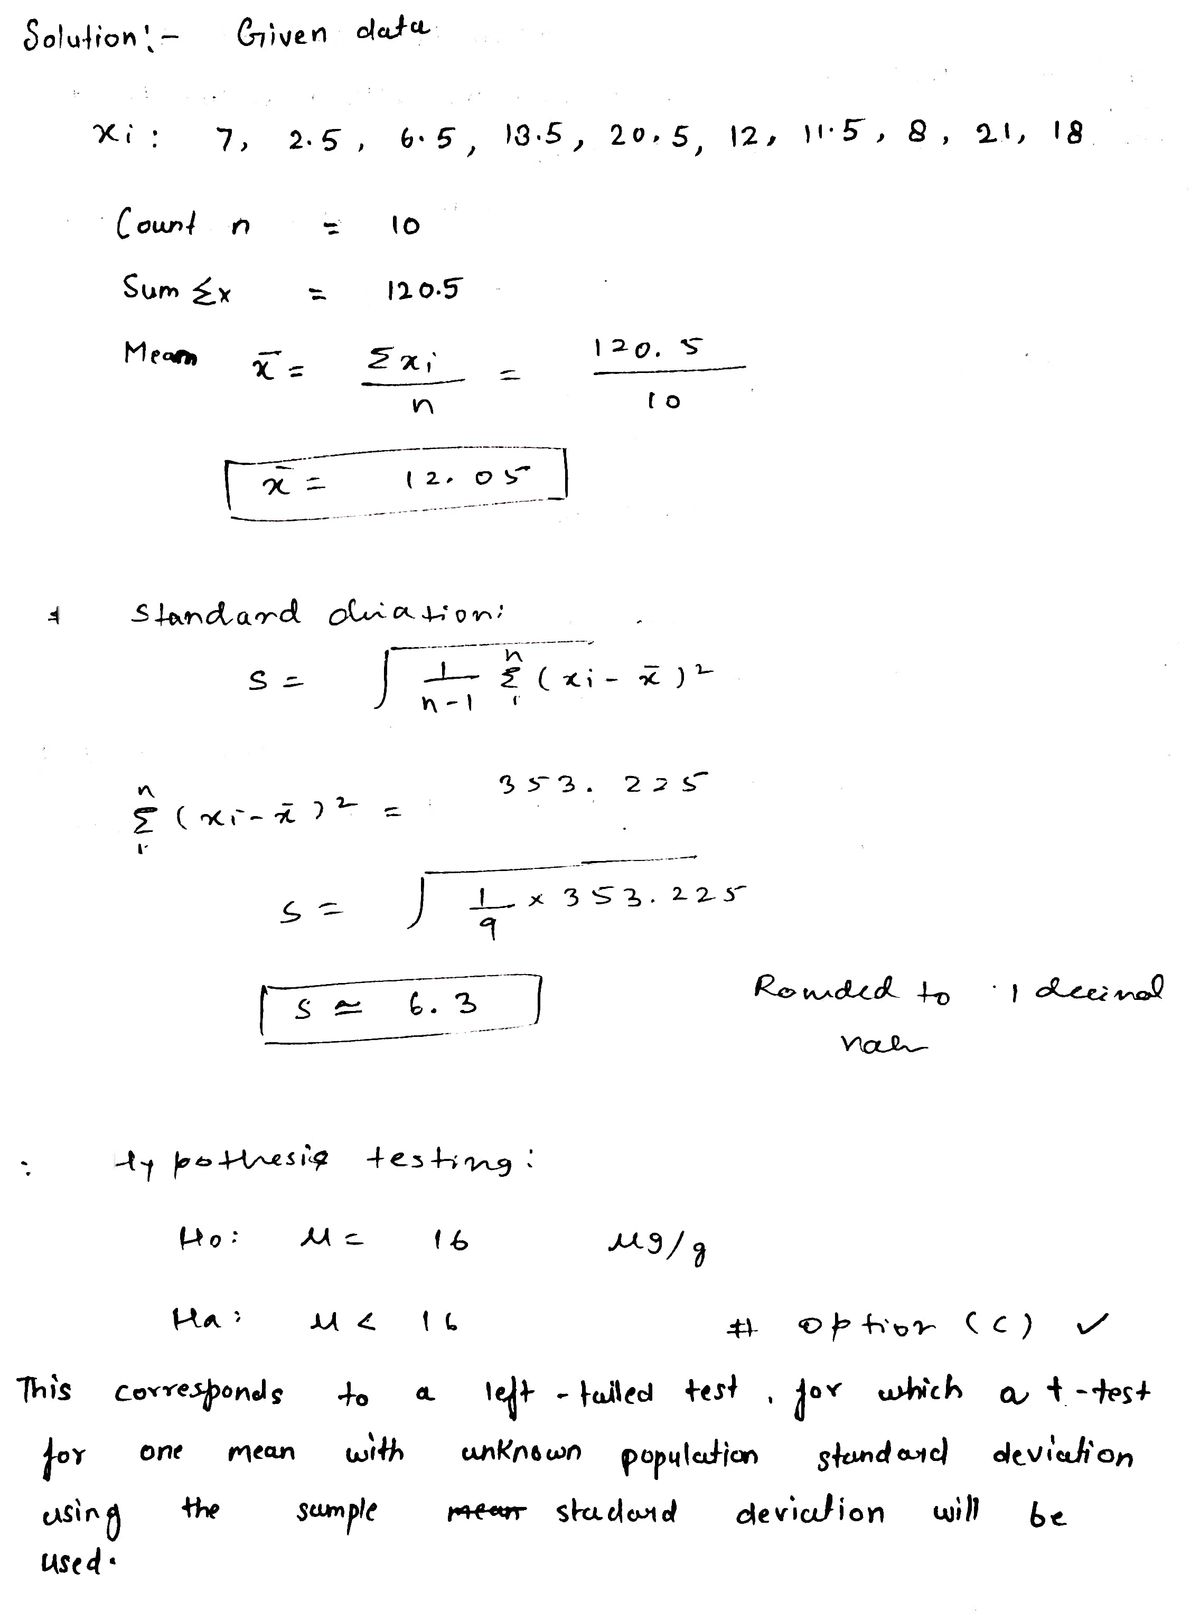 Solution:- Given data
xi: 7, 2.5, 6.5, 13.5, 20.5, 12, 11.5, 8, 21, 18
Count n = 10
Sum Σx = 120.5
Mean x̄ = Σxi / n = 120.5 / 10
x̄ = 12.05
Standard diation:
s = √ 1/n-1 Σ₁ⁿ (xi - x̄)²
Σ₁ⁿ (xi - x̄)² = 353.225
s = √ 1/9 × 353.225
s ≃ 6.3 Rounded to 1 decimal
: Hypothesis testing:
Ho: μ = 16 μg/g
Ha: μ < 16 # option (c) ✓
This corresponds to a left-tailed test, for which a t-test
for one mean with unknown population standard deviation
using the sample mean stadard deviation will be
used.